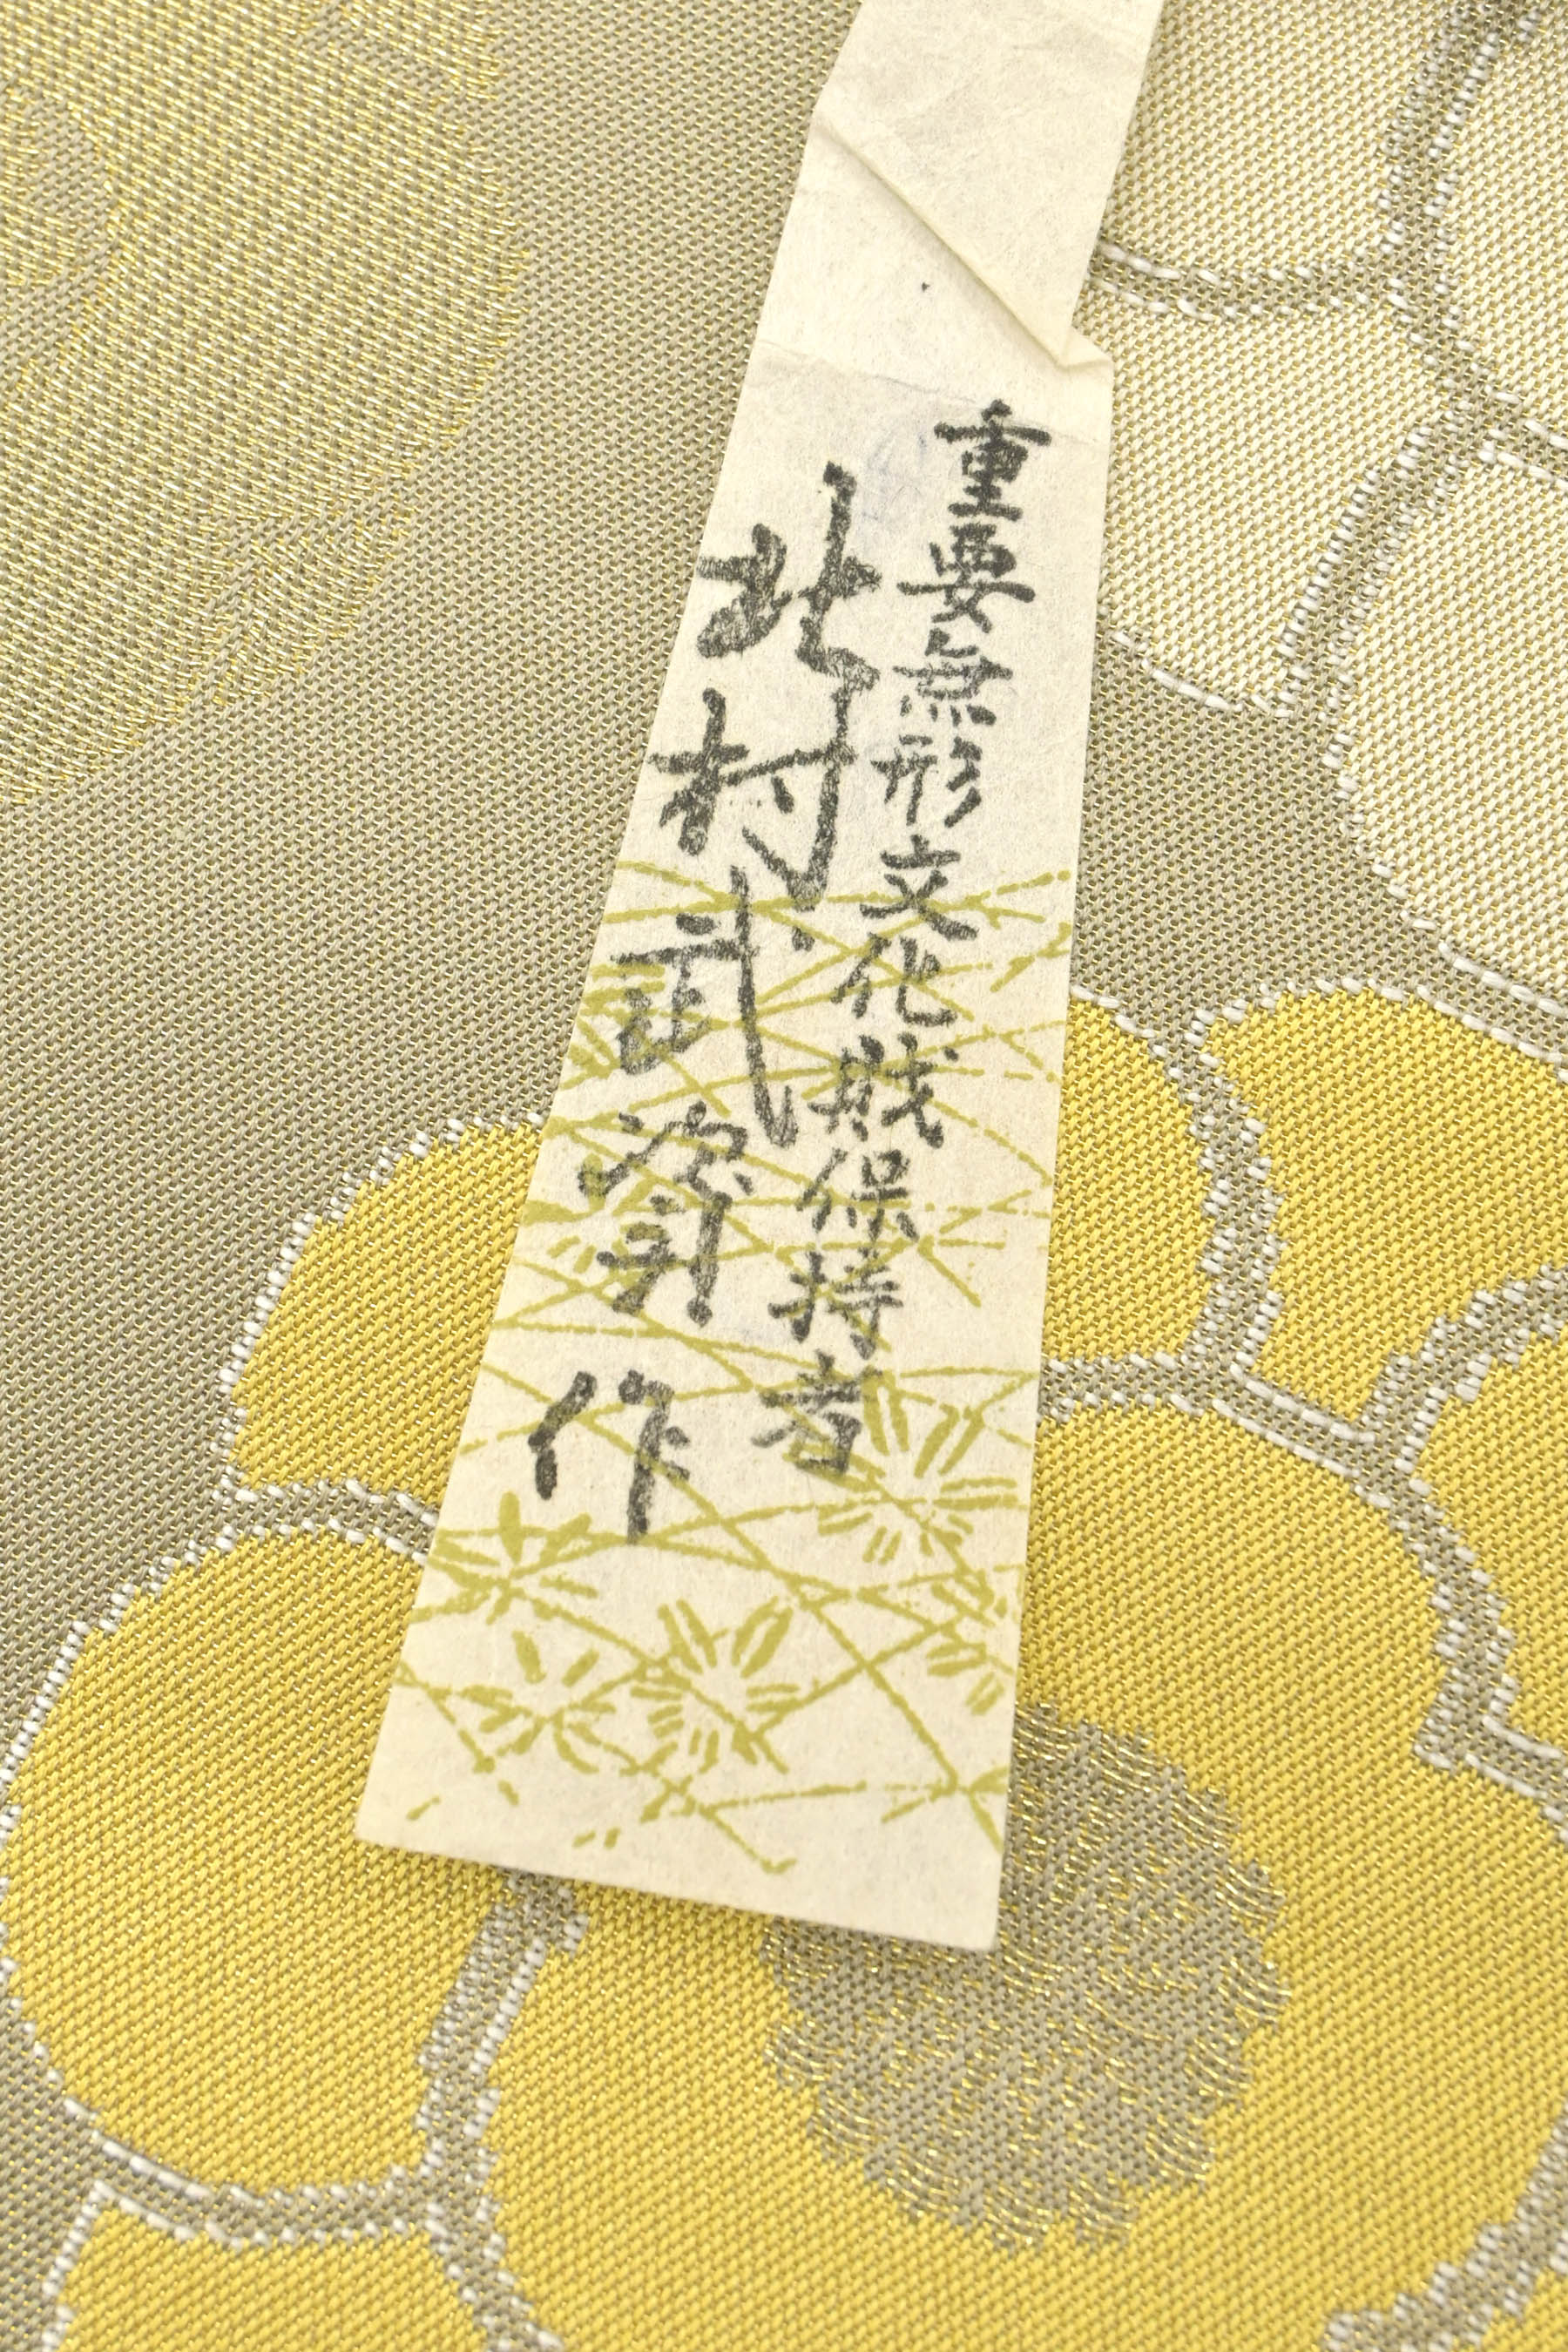 重要無形文化財保持者
北村武資作